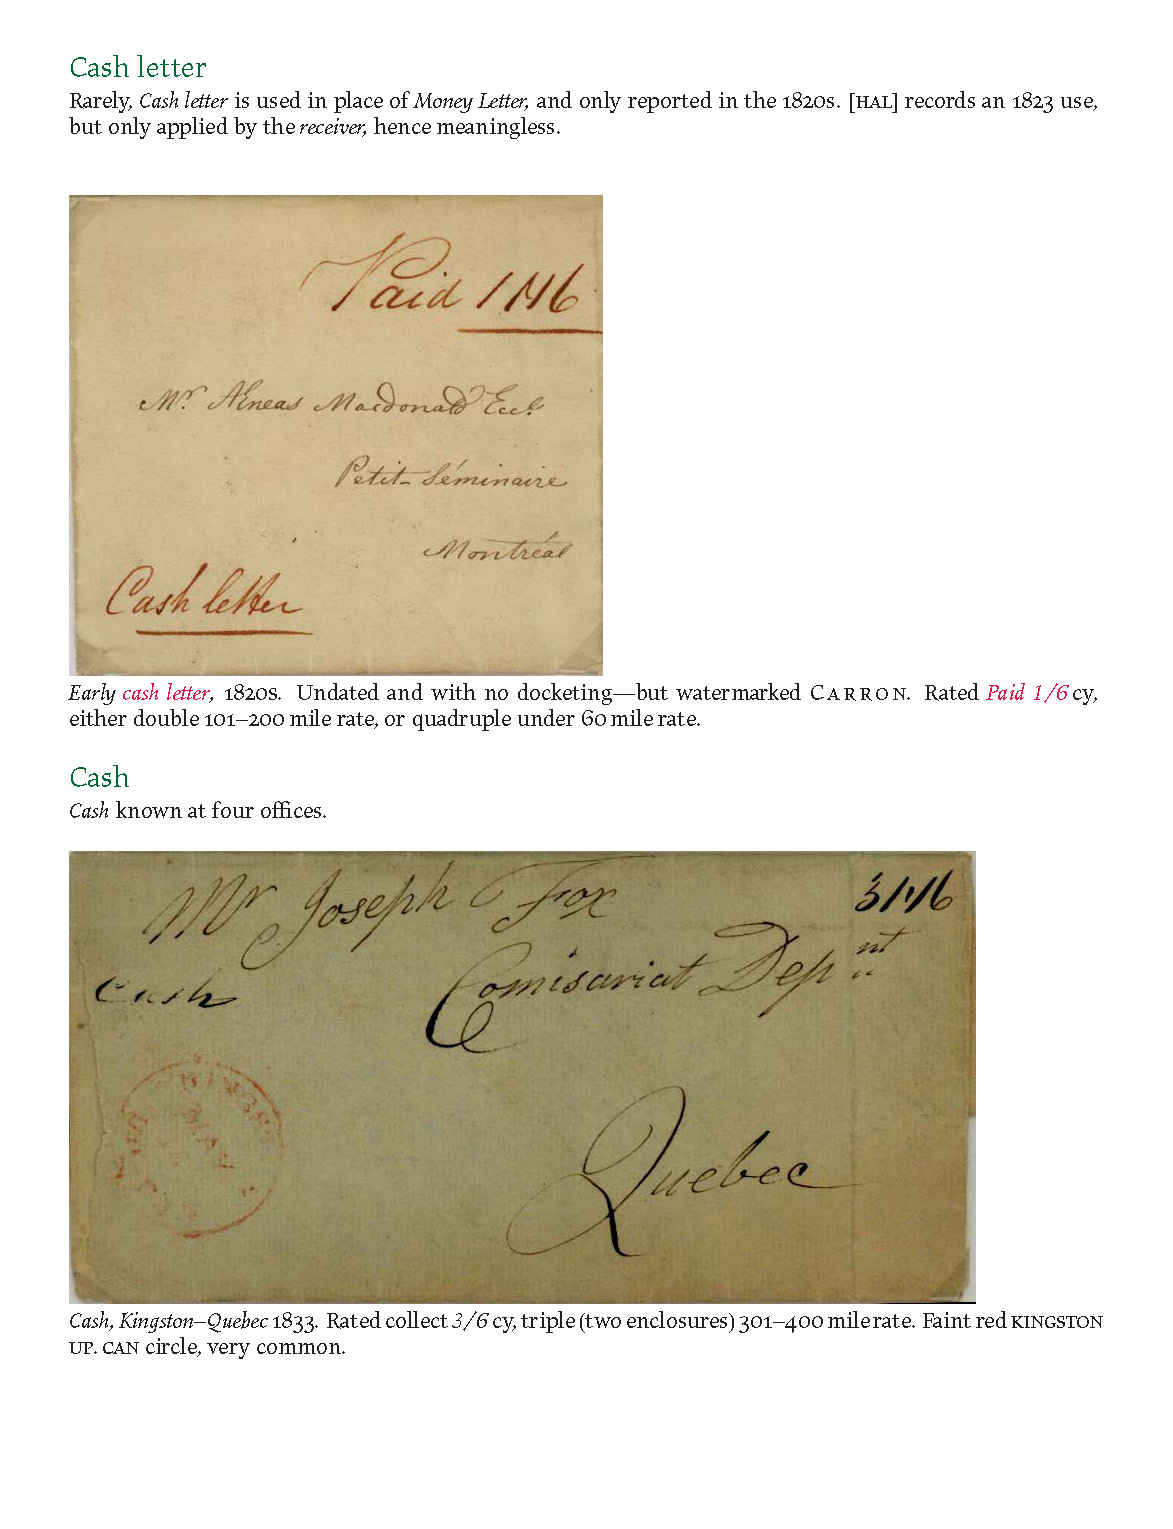 Cash letter
Rarely, Cash letter is used in place of Money Letter, and only reported in the 1820s. [HAL] records an 1823 use,
but only applied by the receiver, hence meaningless.
Paid 1N6
Mr. Æneas Macdonald Eccl.
Petit-Séminaire
Montréal
Cash letter
Early cash letter, 1820s. Undated and with no docketing—but watermarked CARRON. Rated Paid 1/6 cy,
either double 101–200 mile rate, or quadruple under 60 mile rate.
Cash
Cash known at four offices.
Mr Joseph Fox
3/N6
Comisariat Depnt
Cash
Quebec
Cash, Kingston–Quebec 1833. Rated collect 3/6 cy, triple (two enclosures) 301–400 mile rate. Faint red KINGSTON
UP. CAN circle, very common.